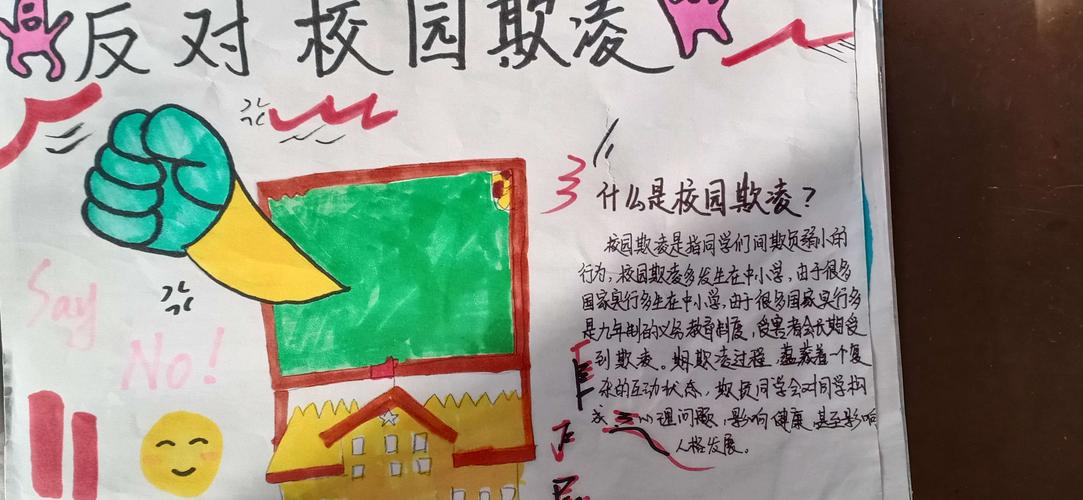 反对校园欺凌
什么是校园欺凌?
校园欺凌是指同学们间欺负弱小的
行为,校园欺凌多发生在中小学,由于很多
国家实行多生在中小学,由于很多国家实行多
是九年制的义务教育制度,受害者会长期受
到欺凌。期欺凌过程,蕴藏着一个复
杂的互动状态,欺负同学会对同学构
成心理问题,影响健康,甚至影响
人格发展。
Say
No!